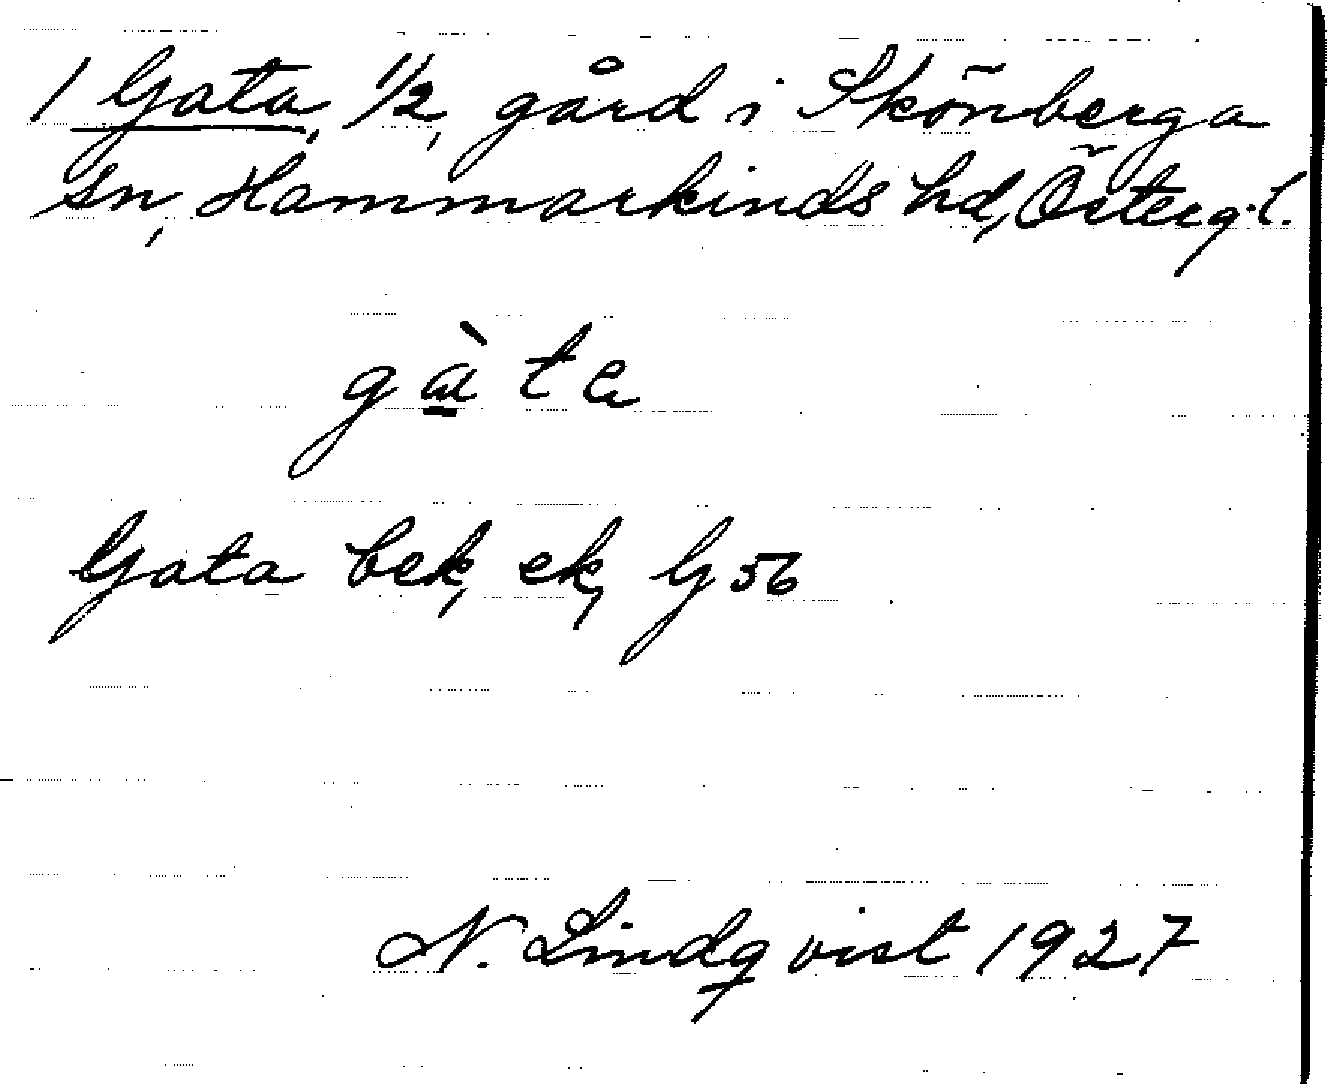 1 Gata, 1/2, gård i Skönberga
sn, Hammarkinds hd, Östergl.
gàta
Gata bek, ek, G 56
N. Lindqvist 1927